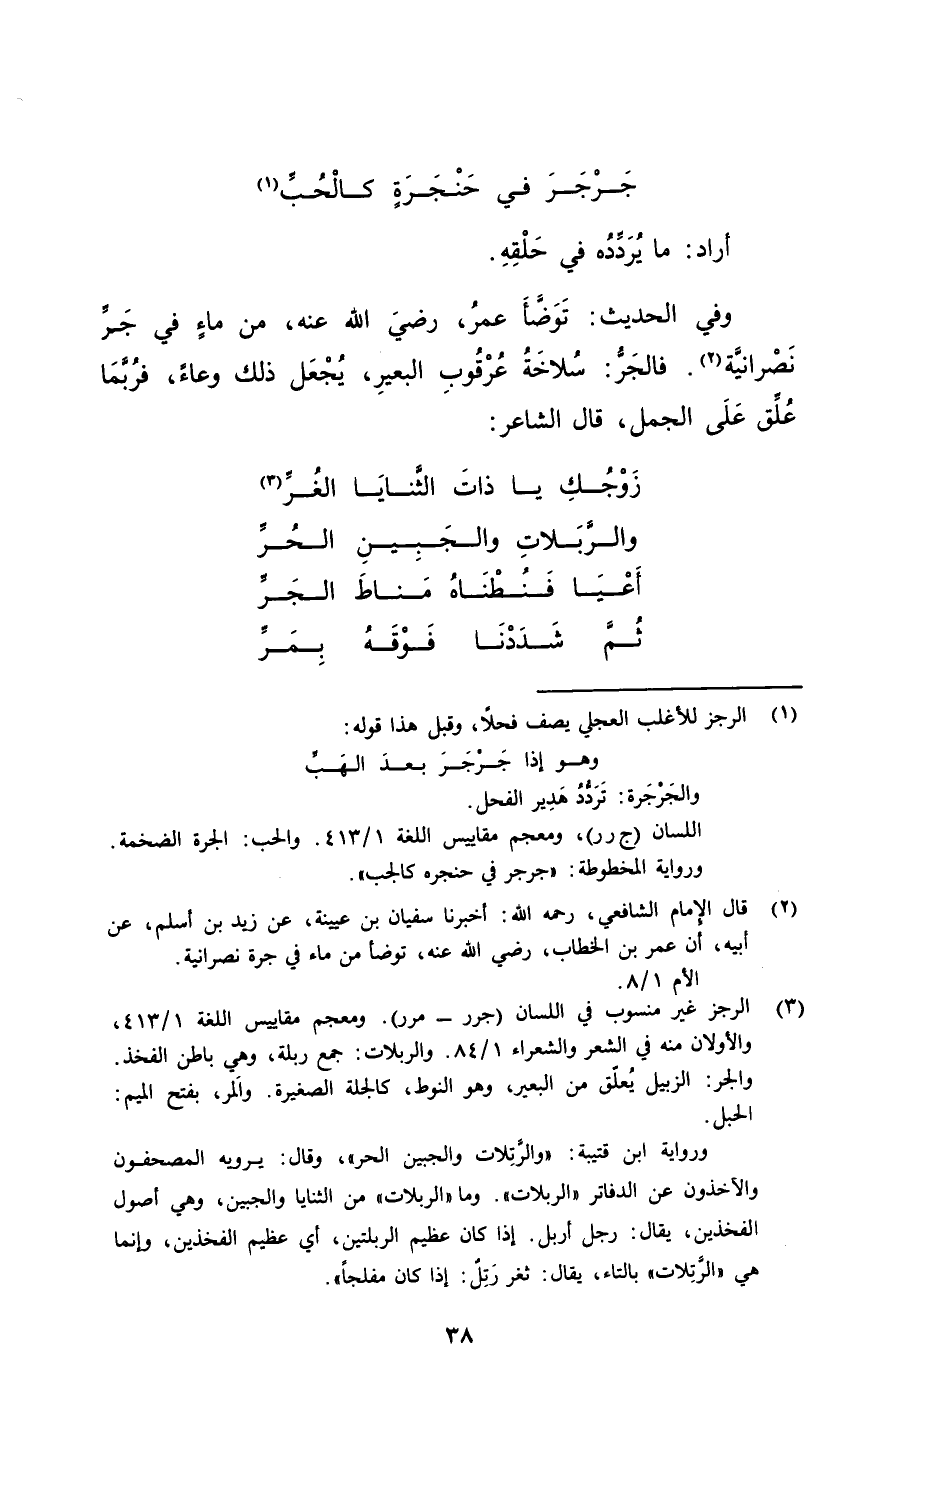 جَـرْجَـرَ فـي حَنْـجَـرَةٍ كـالْحُـبِّ(١)
أراد: ما يُرَدِّدُه في حَلْقِهِ.
وفي الحديث: تَوَضَّأَ عمرُ، رضيَ الله عنه، من ماءٍ في جَرِّ
نَصْرانيَّة(٢). فالجَرُّ: سُلاخَةُ عُرْقُوبِ البعيرِ، يُجْعَل ذلك وعاءً، فرُبَّمَا
عُلِّق عَلَى الجمل، قال الشاعر:
زَوْجُـكِ يـا ذاتَ الثَّنـايَـا الغُـرِّ(٣)
والـرَّبَـلاتِ والـجَـبِـيـنِ الـحُـرِّ
أَعْـيَـا فَـنُـطْنَـاهُ مَـنـاطَ الـجَـرِّ
ثُـمَّ شَـدَدْنَـا فَـوْقَـهُ بِـمَـرِّ
(١) الرجز للأغلب العجلي يصف فحلًا، وقبل هذا قوله:
وهـو إذا جَـرْجَـرَ بـعـدَ الـهَـبِّ
والجَرْجَرة: تَرَدُّدُ هَدِير الفحل.
اللسان (ج رر)، ومعجم مقاييس اللغة ٤١٣/١. والحب: الجرة الضخمة.
ورواية المخطوطة: «جرجر في حنجره كالجب».
(٢) قال الإمام الشافعي، رحمه الله: أخبرنا سفيان بن عيينة، عن زيد بن أسلم، عن
أبيه، أن عمر بن الخطاب، رضي الله عنه، توضأ من ماء في جرة نصرانية.
الأم ٨/١.
(٣) الرجز غير منسوب في اللسان (جرر - مرر). ومعجم مقاييس اللغة ٤١٣/١،
والأولان منه في الشعر والشعراء ٨٤/١. والربلات: جمع ربلة، وهي باطن الفخذ.
والجر: الزبيل يُعلّق من البعير، وهو النوط، كالجلة الصغيرة. والَمر، بفتح الميم:
الحبل.
ورواية ابن قتيبة: «والرَّتِلات والجبين الحر»، وقال: يـرويه المصحفـون
والآخذون عن الدفاتر «الربلات». وما «الربلات» من الثنايا والجبين، وهي أصول
الفخذين، يقال: رجل أربل. إذا كان عظيم الربلتين، أي عظيم الفخذين، وإنما
هي «الرَّتِلات» بالتاء، يقال: ثغر رَتِلّ: إذا كان مفلجاً».
٣٨